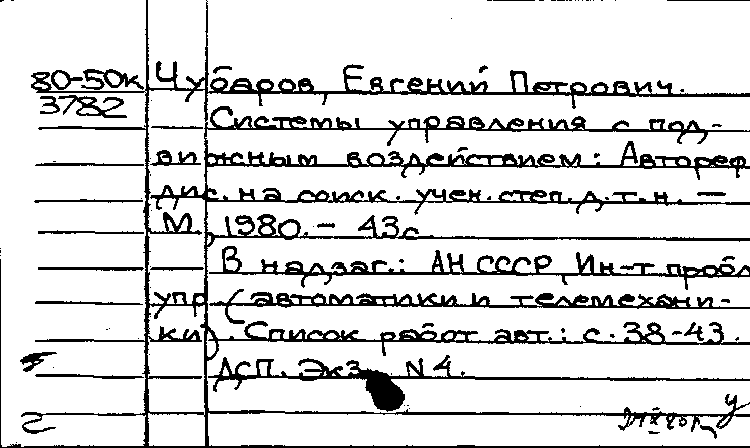 80-50к Чубаров, Евгений Петрович.
3782
Системы управления с под-
вижным воздействием: Автореф
дис. на соиск. учен. степ. д.т.н. —
М., 1980. - 43с.
В надзаг.: АН СССР, Ин-т пробл
упр. (автоматики и телемехани-
ки). Список работ авт.: с. 38-43.
ДСП. Экз. N4.